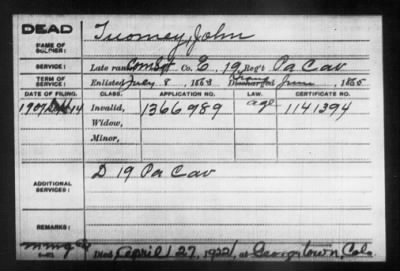 DEAD
NAME OF SOLDIER: Twomey, John
SERVICE: Late rank, Com Sgt Co. E, 19 Reg't Pa Cav
TERM OF SERVICE: Enlisted July 8, 1863 Discharged June, 1865
DATE OF FILING. CLASS. APPLICATION NO. LAW. CERTIFICATE NO.
1907 14 Invalid, 1366989 age 1141394
Widow,
Minor,
ADDITIONAL SERVICES: D 19 Pa Cav
REMARKS:
Died April 27, 1922, at Georgetown, Colo.